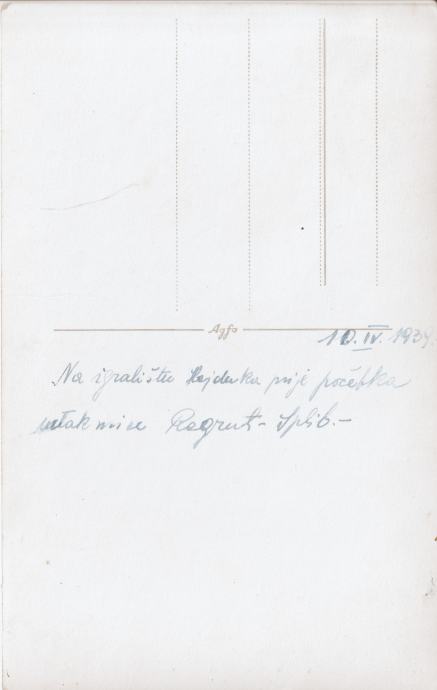 Agfa
10. IV. 1939.
Na igralištu Hajduka prije početka
utakmice Regruti - Split. -